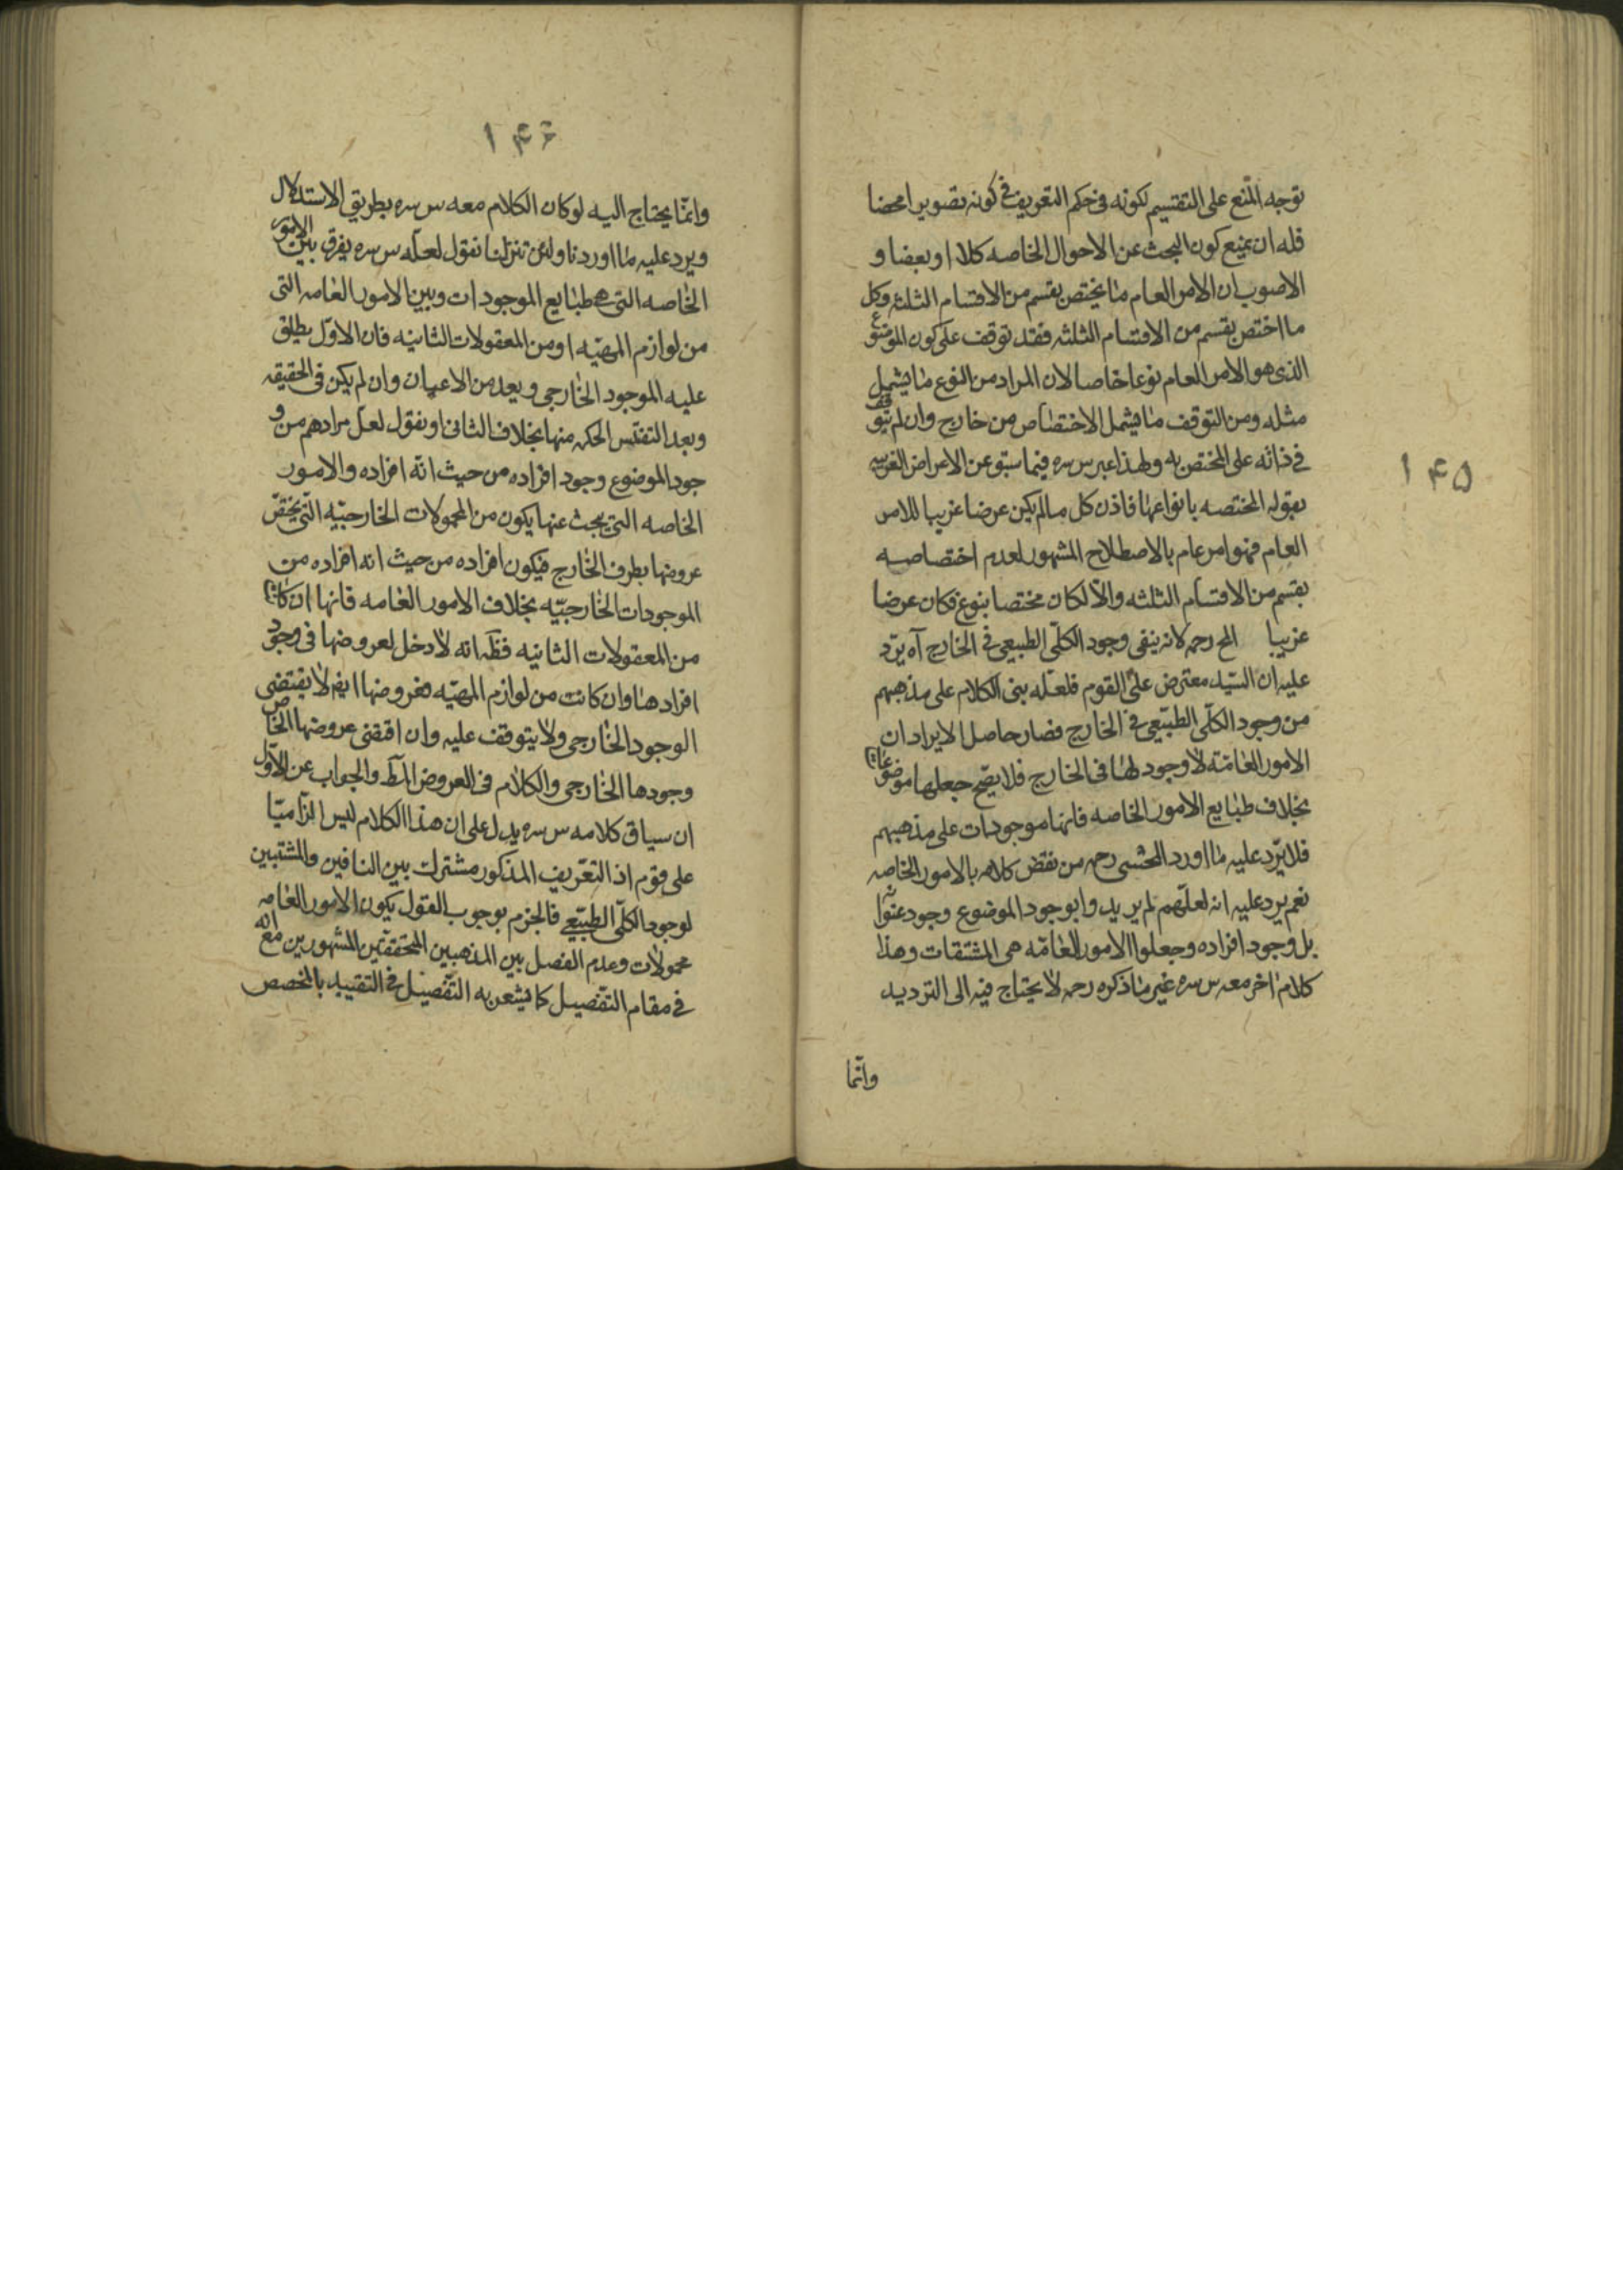 ۱۴۵
توجه المنع على التقسيم لكونه فى حكم التعريف فى كونه تصويرا محضا
فله ان يمنع كون البحث عن الاحوال الخاصه كلا او بعضا و
الاصوب ان الامر العام ما يختص بقسم من الاقسام الثلثه وكل
ما اختص بقسم من الاقسام الثلثه فقد توقف على كون الموضوع
الذى هو الامر العام نوعا خاصا لان المراد من النوع ما يشمل
مثله ومن التوقف ما يشمل الاختصاص من خارج وان لم يتوقف
فى ذاته على المختص به ولهذا عبر س سره فيما سبق عن الاعراض الغريبه
بقوله المختصه بانواعها فاذن كل ما لم يكن عرضا غريبا للامر
العام فهو امر عام بالاصطلاح المشهور لعدم اختصاصه
بقسم من الاقسام الثلثه والّا لكان مختصا بنوع فكان عرضا
غريبا المح رحمه لانه ينفى وجود الكلّى الطبيعى فى الخارج آه يرد
عليه ان السّيد معترض على القوم فلعلّه بنى الكلام على مذهبهم
من وجود الكلّى الطبيعى فى الخارج فصار حاصل الايراد ان
الامور العامّه لا وجود لها فى الخارج فلا يصّح جعلها موضوعات
بخلاف طبايع الامور الخاصه فانها موجودات على مذهبهم
فلا يرد عليه ما اورد المحشى رحمه من نقض كلامه بالامور الخاصه
نعم يرد عليه انه لعلّهم لم يريدوا بوجود الموضوع وجود عنوانه
بل وجود افراده وجعلوا الامور العامّه هى المشتقات وهذا
كلام اخر معه س سره غير ما ذكره رحمه لا يحتاج فيه الى الترديد
وانّما
۱۴۶
وانّما يحتاج اليه لو كان الكلام معه س سره بطريق الاستدلال
ويرد عليه ما اوردنا ولئن تنزلنا نقول لعلّه س سره يفرق بين الامور
الخاصه التى هى طبايع الموجودات وبين الامور العامه التى
من لوازم المهيّه او من المعقولات الثانيه فان الاوّل يطلق
عليه الموجود الخارجى ويعد من الاعيان وان لم يكن فى الحقيقه
وبعد التفتيس الحكه منها بخلاف الثانى او نقول لعل مرادهم من و
جود الموضوع وجود افراده من حيث انه افراده والامور
الخاصه التى يبحث عنها يكون من المحمولات الخارجيّه الّتى يختص
عروضها بطرف الخارج فيكون افراده من حيث انه افراده من
الموجودات الخارجيّه بخلاف الامور العامه فانها ان كانت
من المعقولات الثانيه فظّه انه لا دخل لعروضها فى وجود
افرادها وان كانت من لوازم المهيّه فعروضها ايضا لا يقتضى
الوجود الخارجى ولا يتوقف عليه وان اقتضى عروضها الخاص
وجودها الخارجى والكلام فى العروض المط والجواب عن الاوّل
ان سياق كلامه س سره يدل على ان هذا الكلام ليس الزاميّا
على قوم اذ التعّريف المذكور مشترك بين النافين والمثبتين
لوجود الكلّى الطبّيعى فالجزم بوجوب القول بكون الامور العامه
محمولات وعدم الفصل بين المذهبين المحققّين المشهورين مع انه
فى مقام التفّصيل كما يشعر به التفّصيل فى التقييد بالمخصص